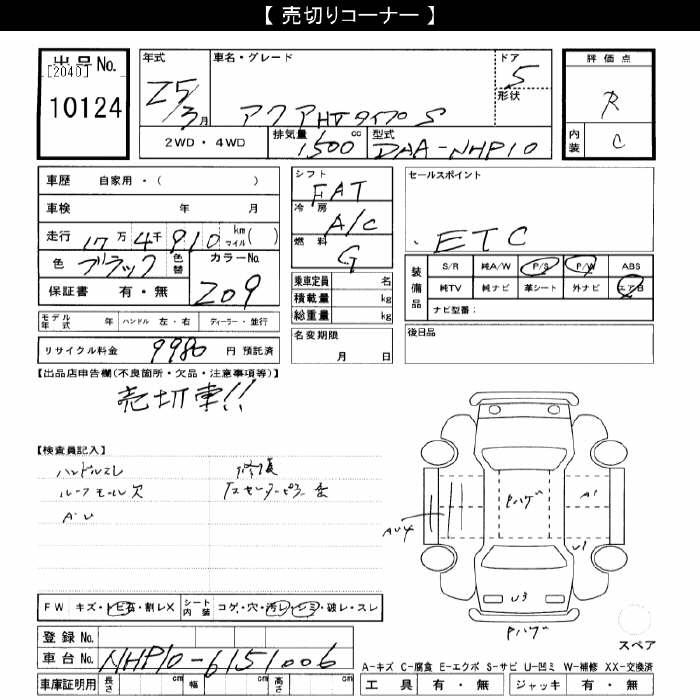 【 売切りコーナー 】
出品No.
[204D]
10124
年式
Z5/3月
車名・グレード
アクア HV タイプ S
ドア
5
形状
評価点
R
内装
C
2WD・4WD
排気量 1500 cc
型式 DAA-NHP10
車歴 自家用・( )
車検 年 月
走行 17万 4千 910 km マイル( )
色 ブラック 色替
カラーNo. 209
保証書 有・無
モデル年式 年 ハンドル 左・右 ディーラー・並行
リサイクル料金 9980 円 預託済
シフト FAT
冷房 A/C
燃料 G
乗車定員 名
積載量 kg
総重量 kg
名変期限
月 日
セールスポイント
・ETC
装備品
S/R 純A/W P/S P/W ABS
純TV 純ナビ 革シート 外ナビ エアB
ナビ型番:
後日品
【出品店申告欄(不良箇所・欠品・注意事項等)】
売切車!!
【検査員記入】
ハンドルスレ
ルーフモール欠
修復
Pハゲ
A1
U1
U3
Pハゲ
スペア
FW キズ・トビ石・割レX
シート内装 コゲ・穴・汚レ・シミ・破レ・スレ
登録No.
車台No. NHP10-6151006
車庫証明用 長さ cm 幅 cm 高さ cm
A-キズ C-腐食 E-エクボ S-サビ U-凹ミ W-補修 XX-交換済
工具 有・無 ジャッキ 有・無